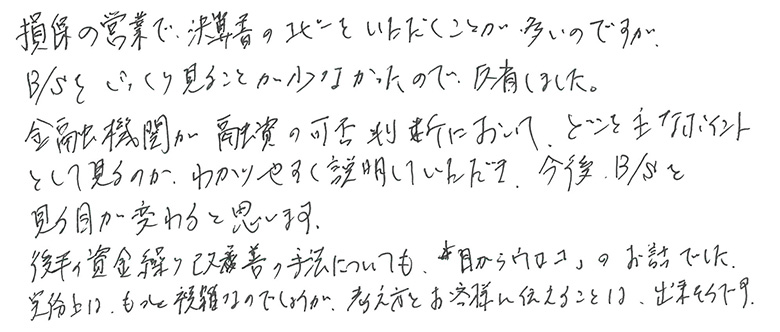 損保の営業で、決算書のコピーをいただくことが多いのですが、
B/Sをじっくり見ることが少なかったので、反省しました。
金融機関が融資の可否判断において、どこを主なポイント
として見るのか、わかりやすく説明していただき、今後、B/Sを
見る目が変わると思います。
後半の資金繰り改善の手法についても、"目からウロコ"のお話でした。
実務上は、もっと複雑なのでしょうが、考え方をお客様に伝えることは、出来そうです。